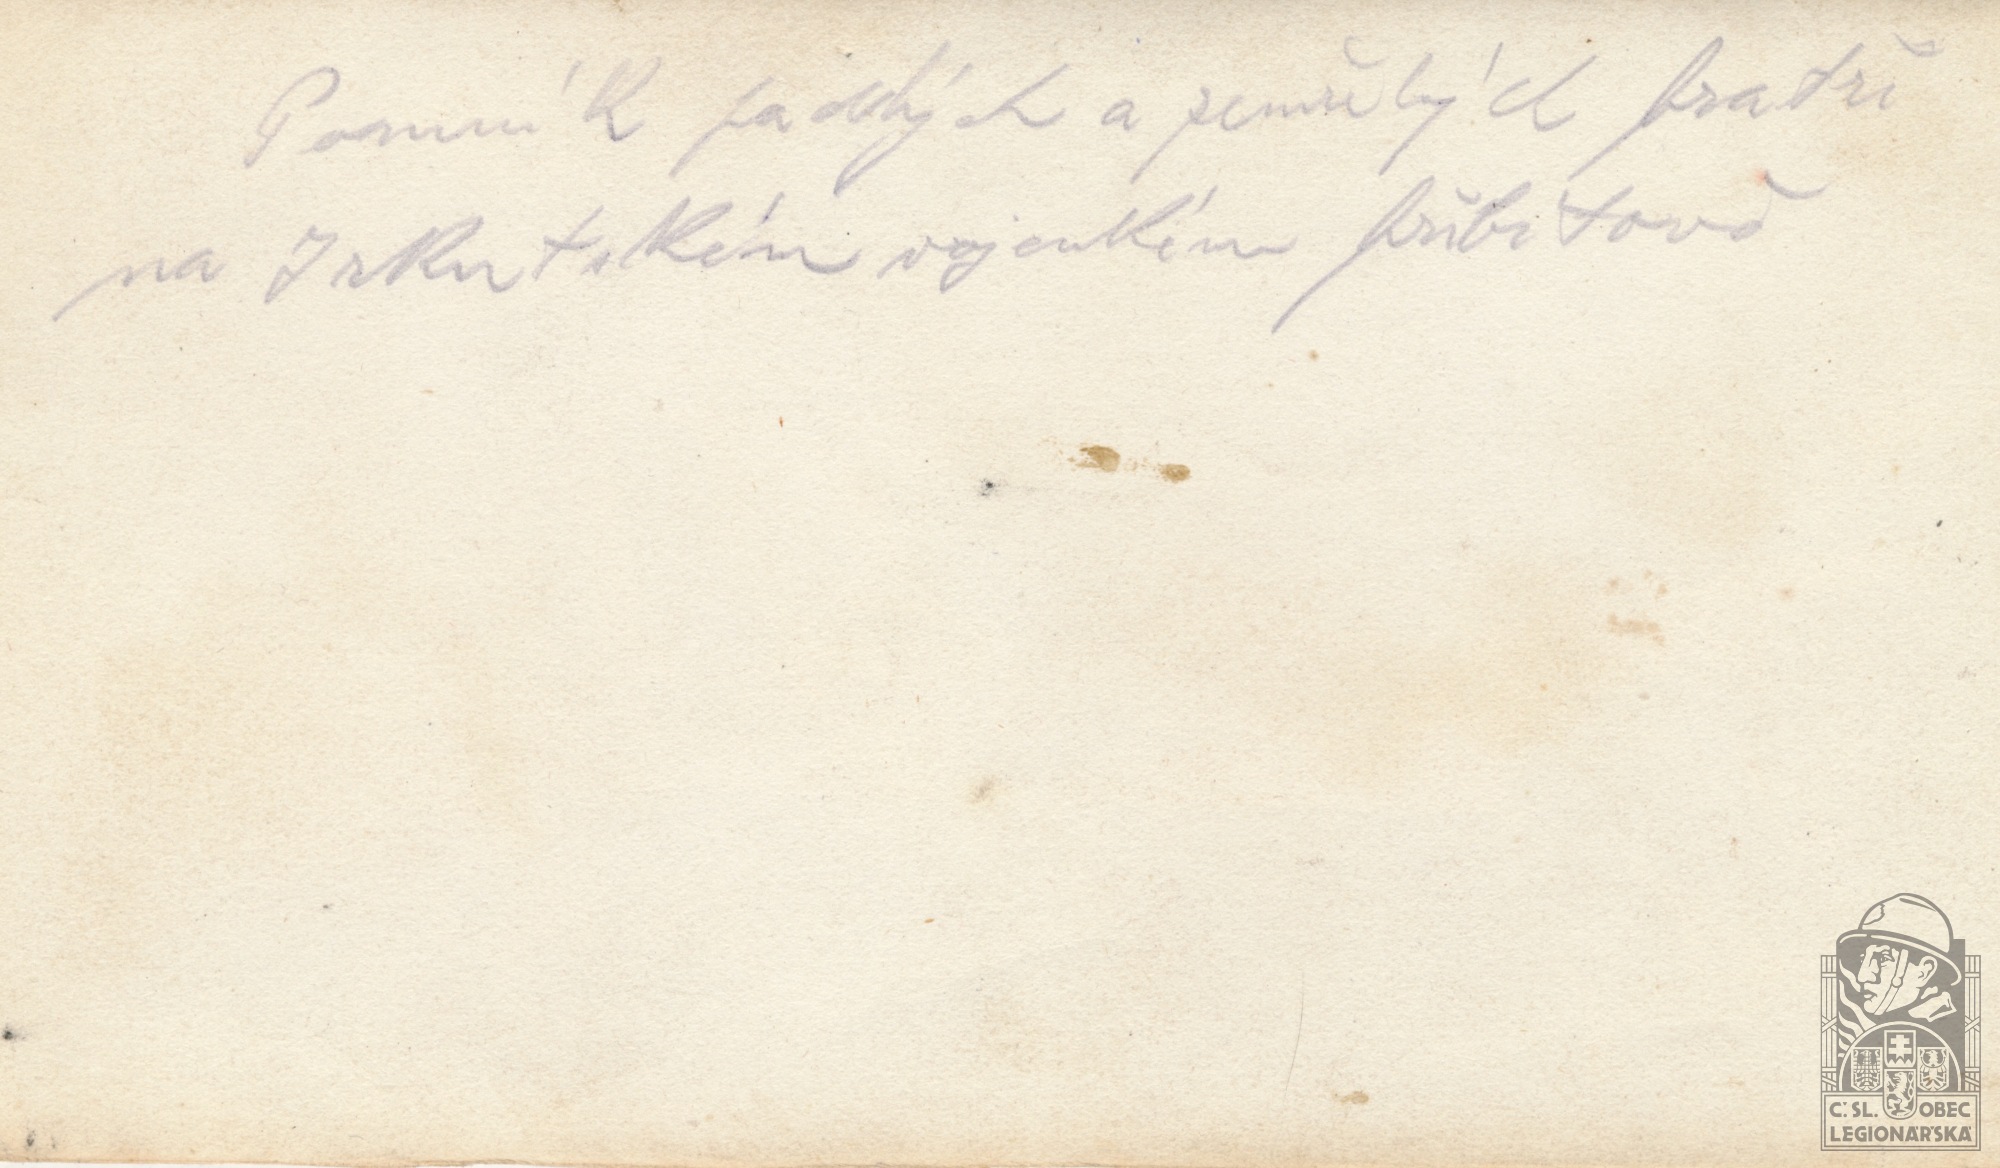 Pomník padlých a zemřelých bratří
na Irkutském vojenském hřbitově
Č. SL. OBEC
LEGIONÁŘSKÁ